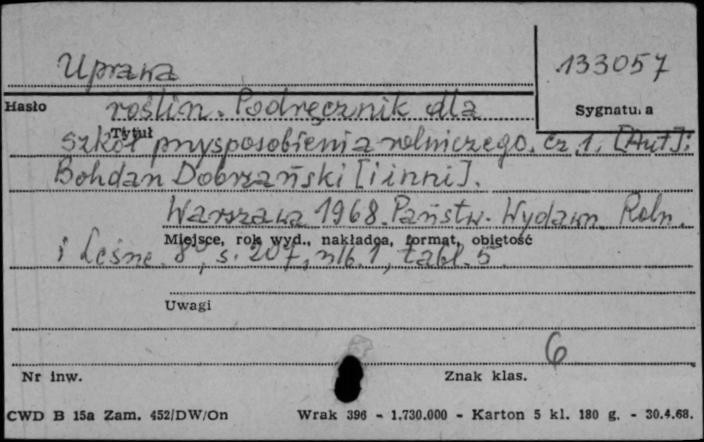 Uprawa
133057
Hasło
roślin. Podręcznik dla
Sygnatura
Tytuł
szkół przysposobienia rolniczego. cz. 1. [Aut]:
Bohdan Dobrzański [i inni].
Warszawa 1968. Państw. Wydawn. Roln.
Miejsce, rok wyd., nakładca, format, objętość
i Leśne. 8°, s. 207, nlb. 1, tabl. 5.
Uwagi
6
Nr inw.
Znak klas.
CWD B 15a Zam. 452/DW/On Wrak 396 - 1.730.000 - Karton 5 kl. 180 g. - 30.4.68.